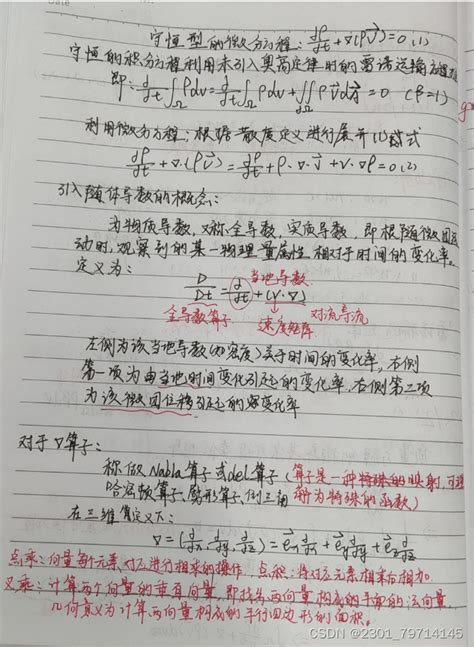 Date
守恒型的微分方程: dρ/dt + ∇(ρV⃗) = 0 (1)
守恒的积分方程利用未引入奥高定律时的雷诺运输方程
即: d/dt ∫Ω ρdv = d/dt ∫Ω ρdv + ∬Ω ρV⃗dA⃗ = 0 (φ=1)
利用微分方程: 根据散度定义进行展开(1)式
dρ/dt + ∇·(ρV⃗) = dρ/dt + ρ·∇·V⃗ + V·∇ρ = 0 (2)
引入随体导数的概念:
为物质导数, 又称全导数, 实质导数, 即根随微团运
动时, 观察到的某一物理量属性相对于时间的变化率。
定义为:
当地导数
D/Dt = d/dt + (V·∇)
全导数算子 速度矩阵 对流导流
左侧为该当地导数(如密度)关于时间的变化率, 右侧
第一项为由当地时间变化引起的变化率, 右侧第二项
为该微团位移引起的变化率
对于∇算子:
称做Nabla算子或del算子(算子是一种特殊的映射, 可理
哈密顿算子、劈形算子、倒三角 解为特殊的函数)
在三维算定义下:
∇ = (d/dx, d/dy, d/dz) = e⃗x d/dx + e⃗y d/dy + e⃗z d/dz
点乘: 向量每个元素对应进行相乘的操作, 点积: 将对应元素相乘后相加。
叉乘: 计算两个向量的垂直向量, 即找当两向量构成的平面的法向量,
几何意义为计算两向量构成的平行四边形的面积。
CSDN @2301_79714145